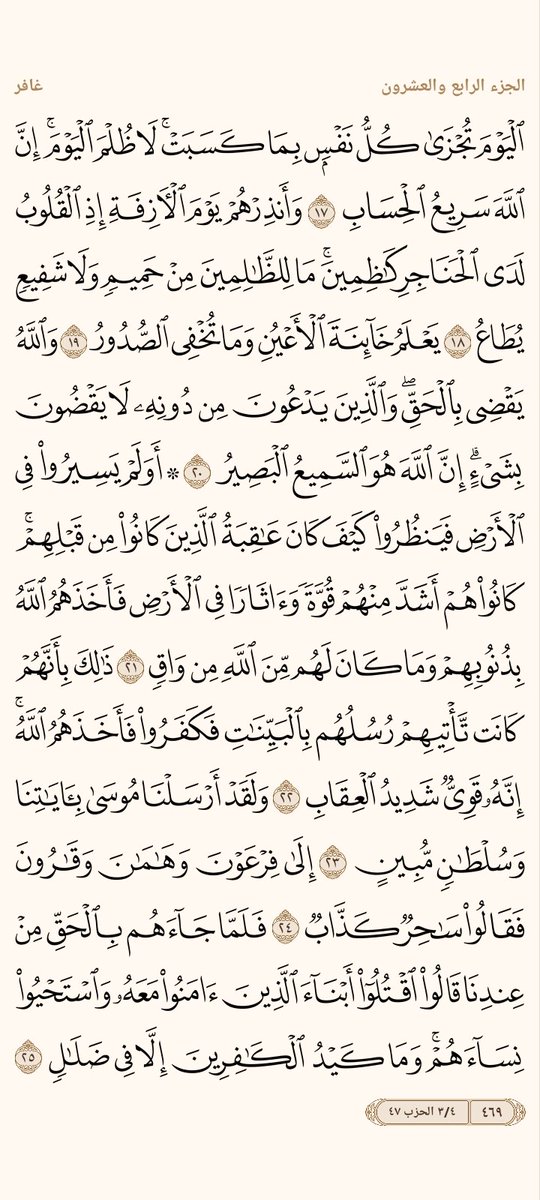 الجزء الرابع والعشرون غافر
ٱلۡيَوۡمَ تُجۡزَىٰ كُلُّ نَفۡسِۭ بِمَا كَسَبَتۡۚ لَا ظُلۡمَ ٱلۡيَوۡمَۚ إِنَّ
ٱللَّهَ سَرِيعُ ٱلۡحِسَابِ ١٧ وَأَنذِرۡهُمۡ يَوۡمَ ٱلۡأٓزِفَةِ إِذِ ٱلۡقُلُوبُ
لَدَى ٱلۡحَنَاجِرِ كَٰظِمِينَۚ مَا لِلظَّٰلِمِينَ مِنۡ حَمِيمٖ وَلَا شَفِيعٖ
يُطَاعُ ١٨ يَعۡلَمُ خَآئِنَةَ ٱلۡأَعۡيُنِ وَمَا تُخۡفِي ٱلصُّدُورُ ١٩ وَٱللَّهُ
يَقۡضِي بِٱلۡحَقِّۖ وَٱلَّذِينَ يَدۡعُونَ مِن دُونِهِۦ لَا يَقۡضُونَ
بِشَيۡءٍۗ إِنَّ ٱللَّهَ هُوَ ٱلسَّمِيعُ ٱلۡبَصِيرُ ٢٠ * أَوَلَمۡ يَسِيرُواْ فِي
ٱلۡأَرۡضِ فَيَنظُرُواْ كَيۡفَ كَانَ عَٰقِبَةُ ٱلَّذِينَ كَانُواْ مِن قَبۡلِهِمۡۚ
كَانُواْ هُمۡ أَشَدَّ مِنۡهُمۡ قُوَّةٗ وَءَاثَارٗا فِي ٱلۡأَرۡضِ فَأَخَذَهُمُ ٱللَّهُ
بِذُنُوبِهِمۡ وَمَا كَانَ لَهُم مِّنَ ٱللَّهِ مِن وَاقٖ ٢١ ذَٰلِكَ بِأَنَّهُمۡ
كَانَت تَّأۡتِيهِمۡ رُسُلُهُم بِٱلۡبَيِّنَٰتِ فَكَفَرُواْ فَأَخَذَهُمُ ٱللَّهُۚ
إِنَّهُۥ قَوِيّٞ شَدِيدُ ٱلۡعِقَابِ ٢٢ وَلَقَدۡ أَرۡسَلۡنَا مُوسَىٰ بِـَٔايَٰتِنَا
وَسُلۡطَٰنٖ مُّبِينٍ ٢٣ إِلَىٰ فِرۡعَوۡنَ وَهَٰمَٰنَ وَقَٰرُونَ
فَقَالُواْ سَٰحِرٞ كَذَّابٞ ٢٤ فَلَمَّا جَآءَهُم بِٱلۡحَقِّ مِنۡ
عِندِنَا قَالُواْ ٱقۡتُلُوٓاْ أَبۡنَآءَ ٱلَّذِينَ ءَامَنُواْ مَعَهُۥ وَٱسۡتَحۡيُواْ
نِسَآءَهُمۡۚ وَمَا كَيۡدُ ٱلۡكَٰفِرِينَ إِلَّا فِي ضَلَٰلٖ ٢٥
٤٦٩ ٣/٤ الحزب ٤٧